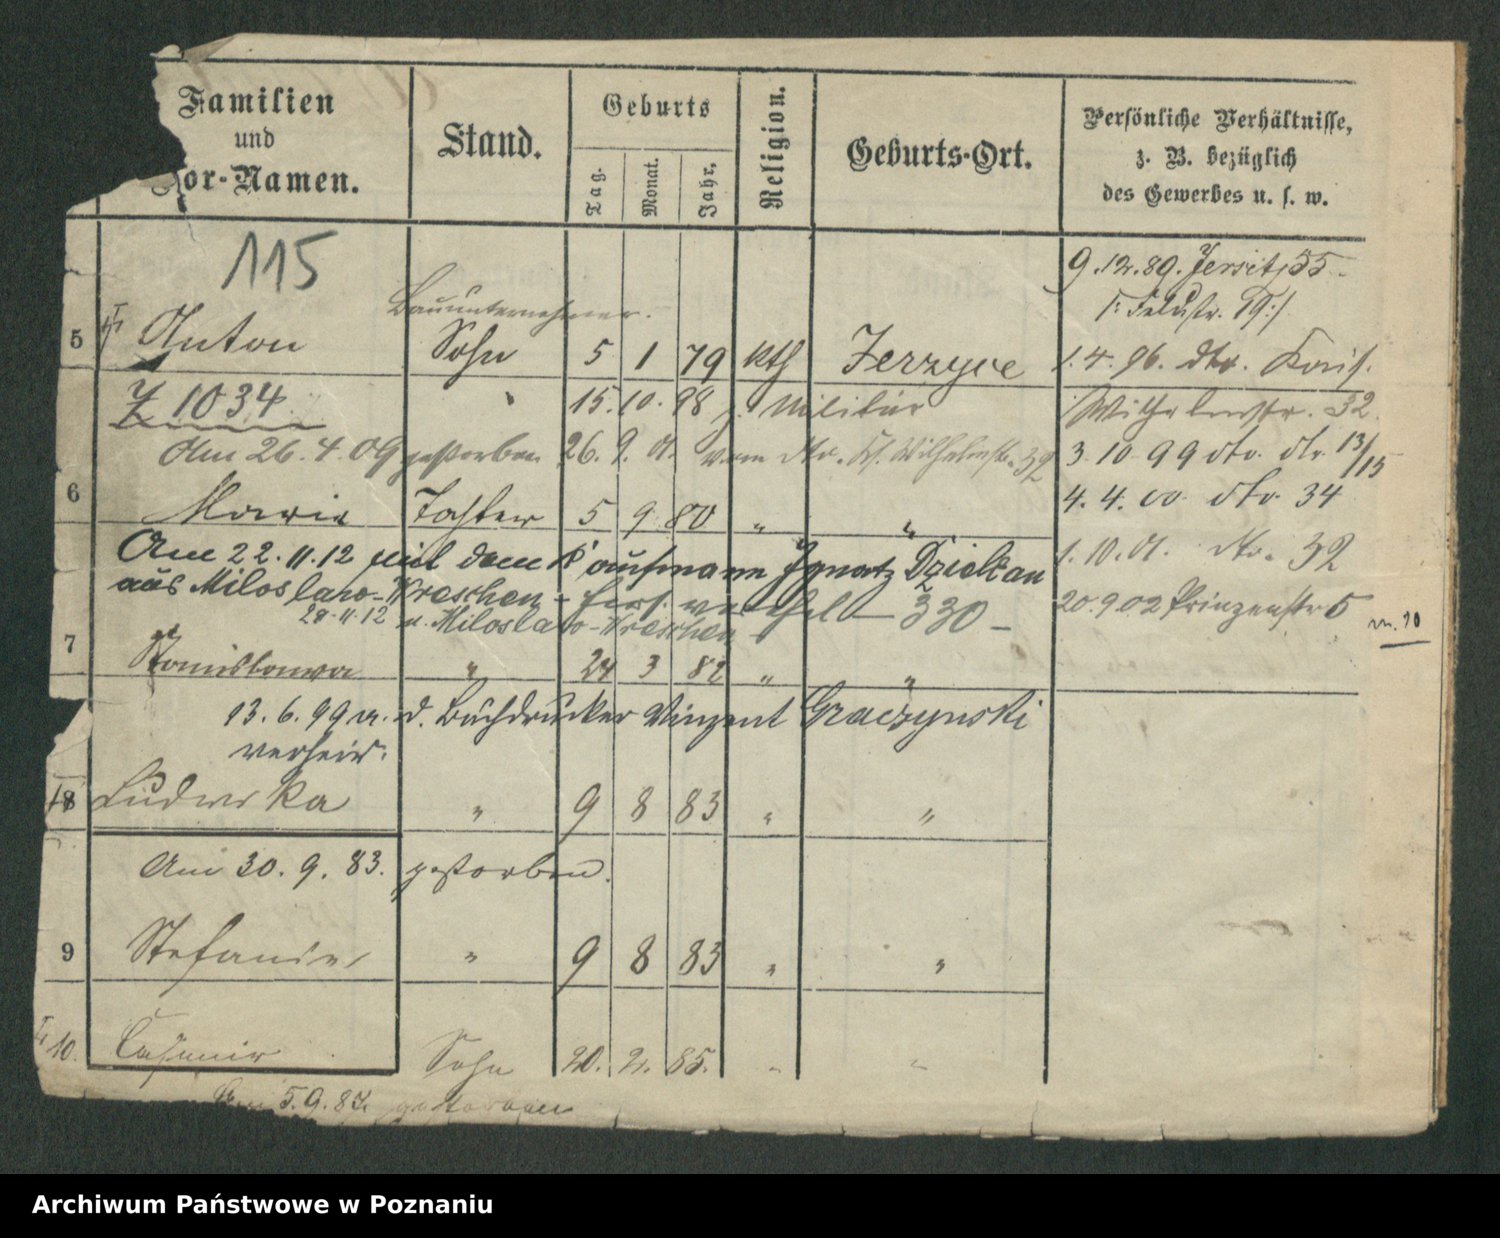 Familien
und
Vor-Namen.
Stand.
Geburts
Tag.
Monat.
Jahr.
Religion.
Geburts-Ort.
Persönliche Verhältnisse,
z. B. bezüglich
des Gewerbes u. s. w.
115
9.12.89. Jersitz 55
Bauunternehmer.
5 Anton Sohn 5 1 79 kth Jerzyce
1.4.96. dto.
Z 1034 15.10.98 z. Militär
Wilhelmstr. 32
Am 26.4.09 gestorben 26.9.01. vom dto. Wilhelmstr. 32
3.10.99 dto. dto. 13/15
6 Maria Tochter 5 9 80 " "
4.4.00 dto 34
Am 22.11.12 mit dem Kaufmann Ignatz Dzieltan
1.10.01. dto. 32
aus Miloslaw-Wreschen - hers. verehel - 330 -
20.9.02 Prinzenstr 5
28.11.12 n. Miloslaw-Wreschen
7 Stanislawa " 24 3 82 " "
13.6.99 m. d. Buchdrucker Vinzent Graczynski
verheir.
8 Ludwika " 9 8 83 " "
Am 30.9.83. gestorben.
9 Stefanie " 9 8 83 " "
10. Casimir Sohn 20. 2. 85. " "
Am 5.9.87 gestorben
Archiwum Państwowe w Poznaniu